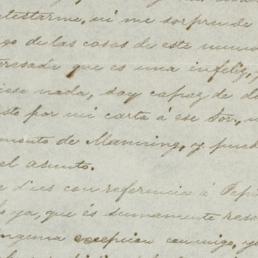 testarme, ni me sorprende
go de las cosas de este mun
resado que es una infeliz, y
iese nada, soy capaz de d
sto por mi carta á ese Sor,
mento de Manning, y pued
el asunto.
e d'es con referencia á Pep
o ya, que és sumamente rese
ingenia excepcion conmigo, y